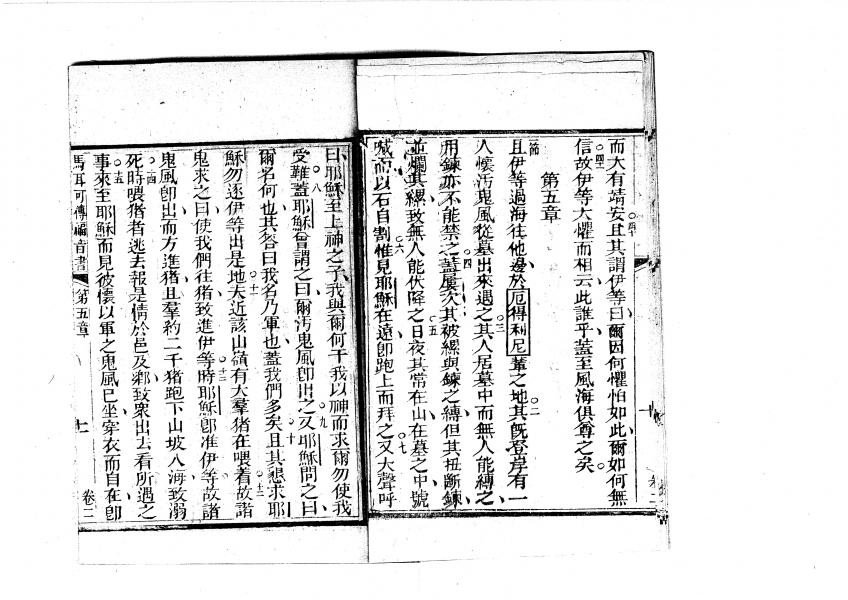 而大有靖安且其謂伊等曰爾因何懼怕如此爾如何無
信故伊等大懼而相云此誰乎蓋至風海俱尊之矣
第五章
且伊等過海往他邊於厄得利尼輩之地其旣登岸有一
人懷汚鬼風從墓出來遇之其人居墓中而無人能縛之
用鍊亦不能禁之蓋屢次其被縲與鍊之縛但其扭斷鍊
並爛其縲致無人能伏降之日夜其常在山在墓之中號
喊而以石自割惟見耶穌在遠卽跑上而拜之又大聲呼
曰耶穌至上神之子我與爾何干我以神而求爾勿使我
受難蓋耶穌曾謂之曰爾汚鬼風卽出之又耶穌問之曰
爾名何也其答曰我名乃軍也蓋我們多矣且其懇求耶
穌勿逐伊等出是地夫近該山嶺有大羣猪在喂着故諸
鬼求之曰使我們往猪致進伊等時耶穌卽准伊等故諸
鬼風卽出而方進猪且羣約二千猪跑下山坡入海致溺
死時喂猪者逃去報是情於邑及鄉致衆出去看所遇之
事來至耶穌而見彼懷以軍之鬼風已坐穿衣而自在卽
馬耳可傳福音書 第五章 七 卷二